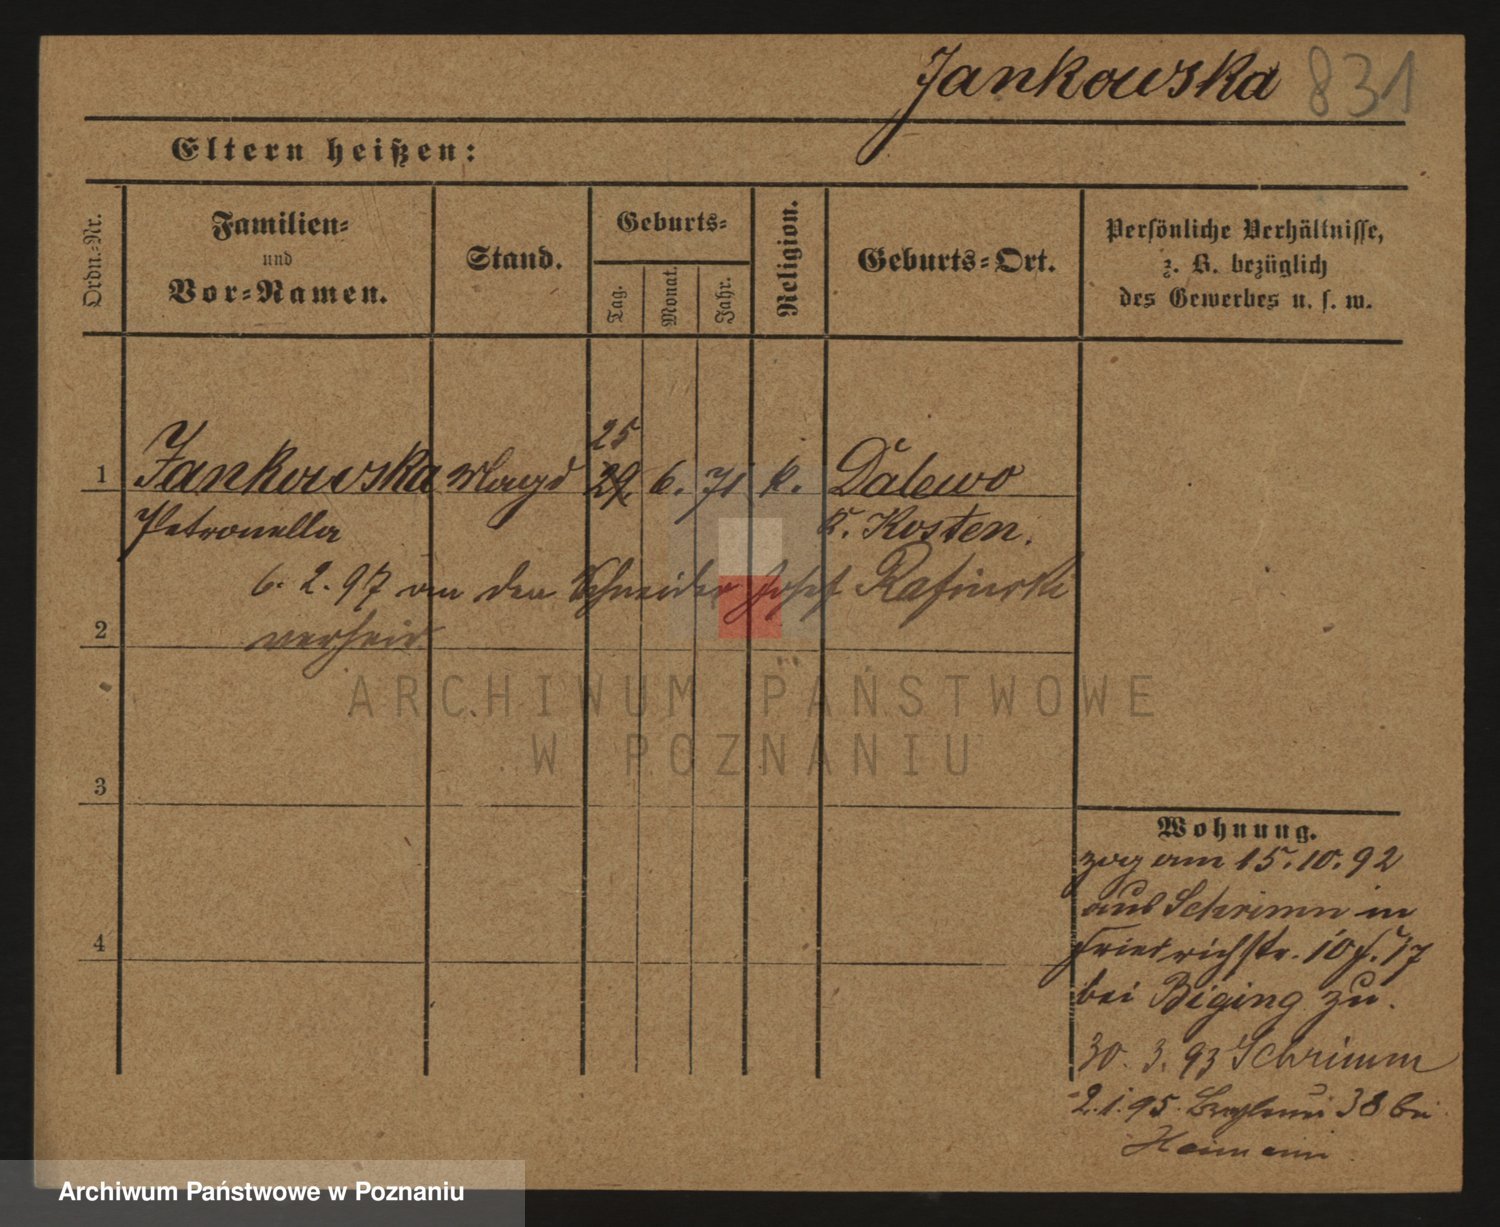 Jankowska 831
Eltern heißen:
Ordn.-Nr.
Familien-
und
Vor-Namen.
Stand.
Geburts-
Tag.
Monat.
Jahr.
Religion.
Geburts-Ort.
Persönliche Verhältnisse,
z. B. bezüglich
des Gewerbes u. s. w.
25
1 Jankowska Magd 29. 6. 71 k. Dalewo
Petronella K. Kosten.
6. 2. 97 an den Schneider Josef Rafinski
2 verheir.
ARCHIWUM PAŃSTWOWE
W POZNANIU
3
4
Wohnung.
zog am 15.10.92
aus Schrimm in
Friedrichstr. 10 f. 17
bei Biging zu.
30. 3. 93 Schrimm
2.1.95. 38 bei
Heimann
Archiwum Państwowe w Poznaniu